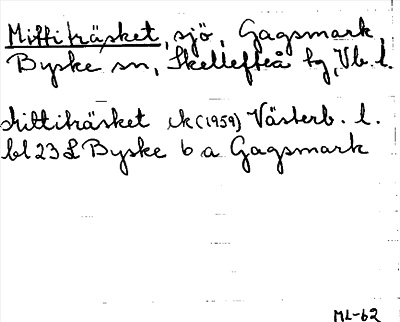 Mittiträsket, sjö, Gagsmark,
Byske sn, Skellefteå tg, Vb. l.
Mittiträsket ek (1959) Västerb. l.
bl 23 L Byske 6 a Gagsmark
ML-62